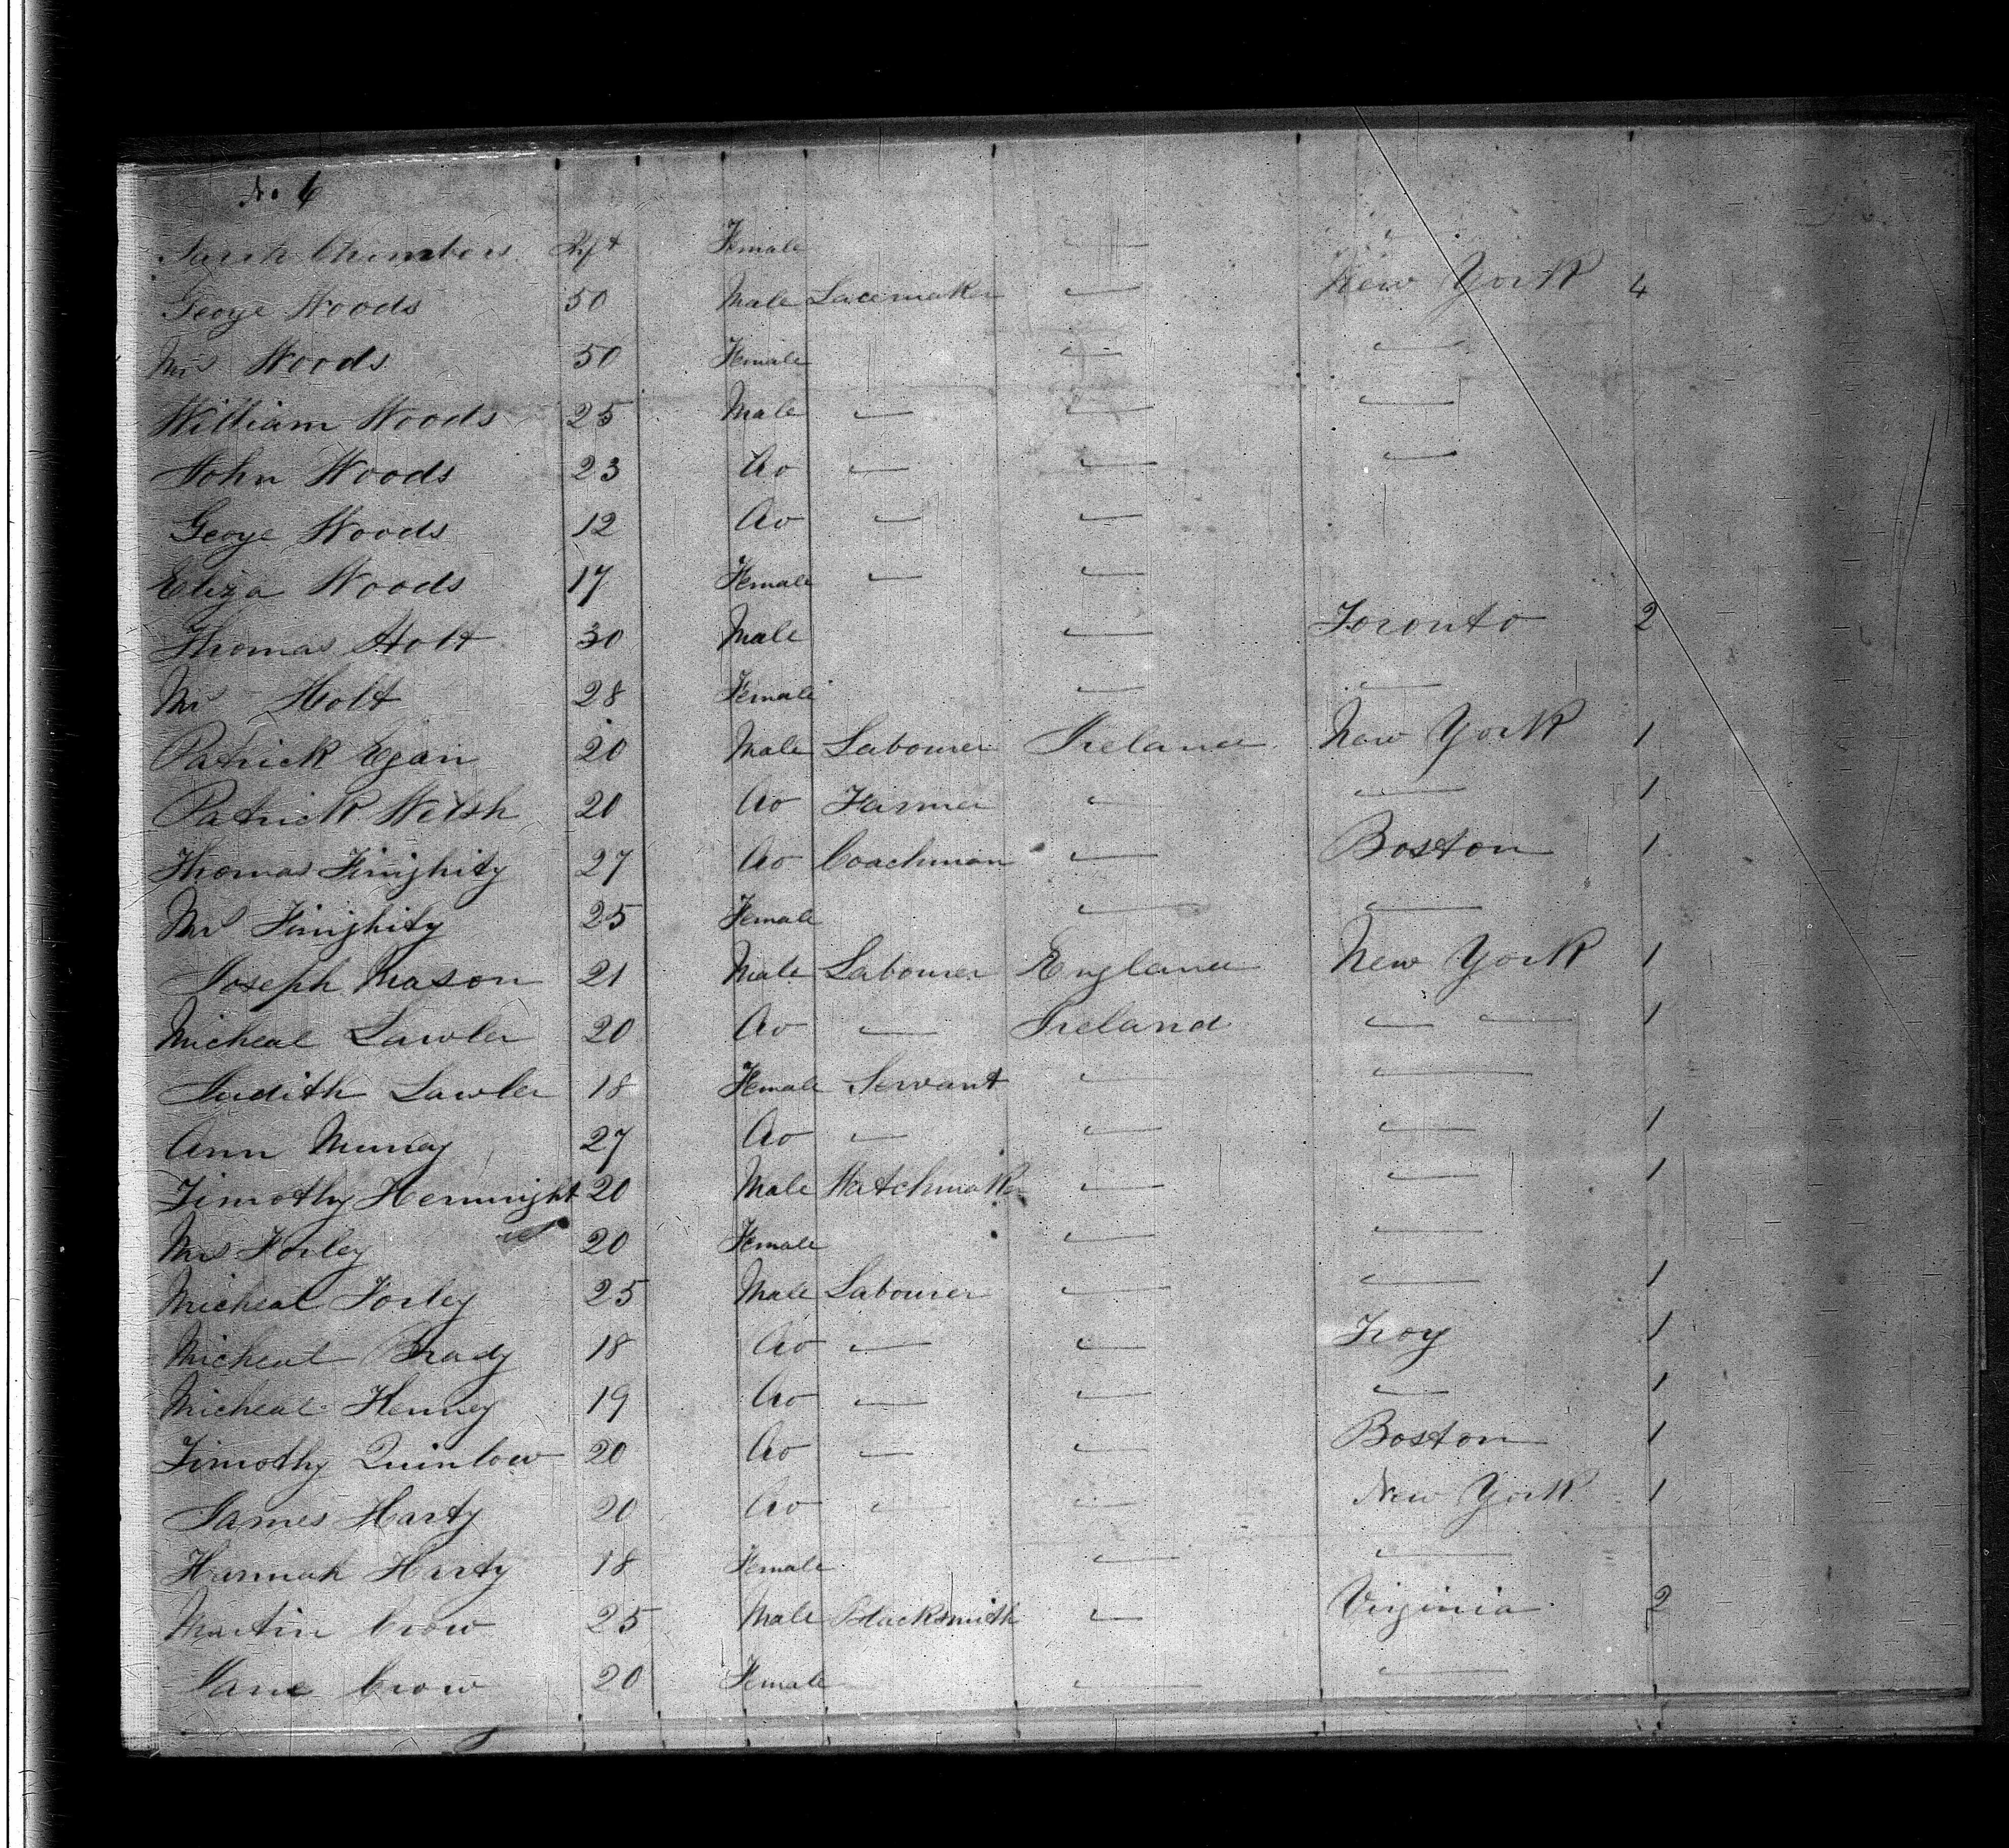 No 6
Sarah Chambers Inft Female — —
George Woods 50 Male Lacemaker — New York 4
Mrs Woods 50 Female — —
William Woods 25 Male — — —
John Woods 23 Do — — —
George Woods 12 Do — —
Eliza Woods 17 Female — —
Thomas Holt 30 Male — Toronto 2
Mrs Holt 28 Female — —
Patrick Egan 20 Male Labourer Ireland New York 1
Patrick Welsh 20 Do Farmer — — 1
Thomas Finighity 27 Do Coachman — Boston 1
Mrs Finighity 25 Female — —
Joseph Mason 21 Male Labourer England New York 1
Micheal Lawler 20 Do — Ireland — — 1
Judith Lawler 18 Female Servant — —
Ann Murray 27 Do — — — 1
Timothy Hernright 20 Male Watchmaker — — 1
Mrs Forley 20 Female — —
Micheal Forley 25 Male Labourer — — 1
Micheal Brady 18 Do — — Troy 1
Micheal Kenney 19 Do — — — 1
Timothy Quinlow 20 Do — — Boston 1
James Harty 20 Do — — New York 1
Hannah Harty 18 Female — —
Martin Crow 25 Male Blacksmith — Virginia 2
Jane Crow 20 Female — —